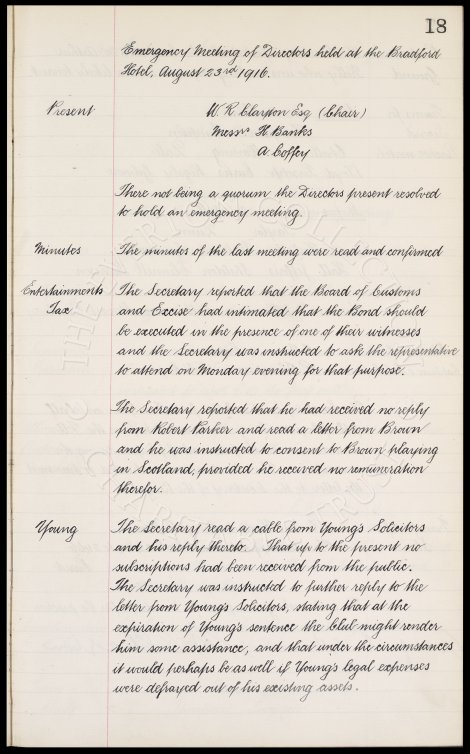 18
Emergency Meeting of Directors held at the Bradford
Hotel, August 23rd 1916.
Present
W. R. Clayton Esq (Chair)
Messrs H. Banks
A Coffey
There not being a quorum the Directors present resolved
to hold an emergency meeting.
Minutes
The minutes of the last meeting were read and confirmed
Entertainments
Tax
The Secretary reported that the Board of Customs
and Excise had intimated that the Bond should
be executed in the presence of one of their witnesses
and the Secretary was instructed to ask the representative
to attend on Monday evening for that purpose.
The Secretary reported that he had received no reply
from Robert Parker and read a letter from Brown
and he was instructed to consent to Brown playing
in Scotland, provided he received no remuneration
therefor.
Young
The Secretary read a cable from Young's Solicitors
and his reply thereto. That up to the present no
subscriptions had been received from the public.
The Secretary was instructed to further reply to the
letter from Young's Solicitors, stating that at the
expiration of Young's sentence the Club might render
him some assistance, and that under the circumstances
it would perhaps be as well if Young's legal expenses
were defrayed out of his existing assets.